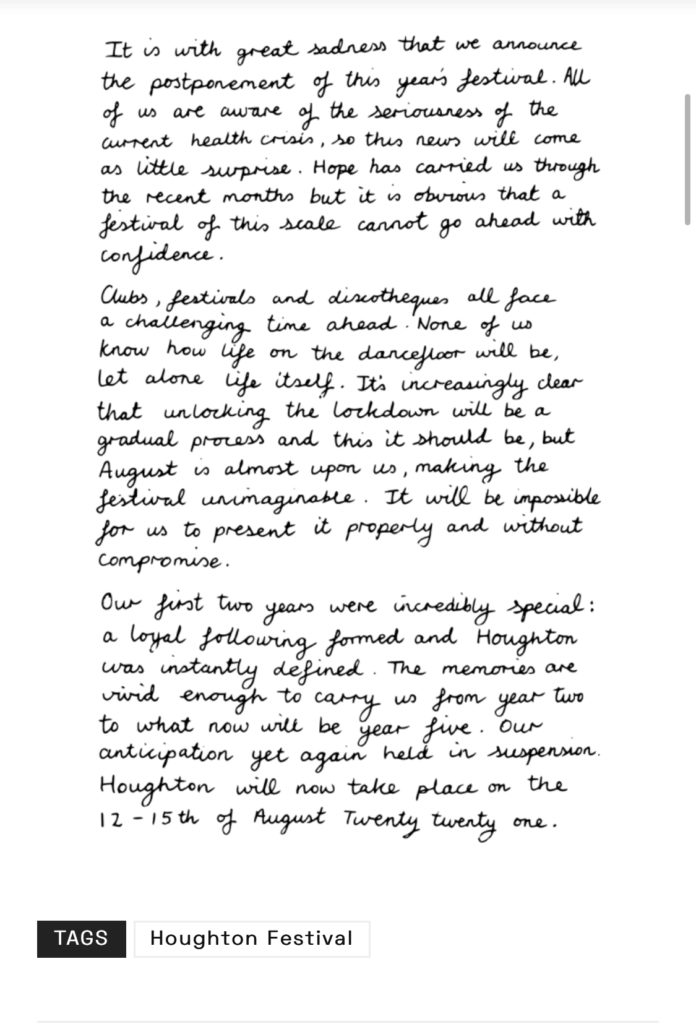 It is with great sadness that we announce
the postponement of this year's festival. All
of us are aware of the seriousness of the
current health crisis, so this news will come
as little surprise. Hope has carried us through
the recent months but it is obvious that a
festival of this scale cannot go ahead with
confidence.
Clubs, festivals and discotheques all face
a challenging time ahead. None of us
know how life on the dancefloor will be,
let alone life itself. It's increasingly clear
that unlocking the lockdown will be a
gradual process and this it should be, but
August is almost upon us, making the
festival unimaginable. It will be impossible
for us to present it properly and without
compromise.
Our first two years were incredibly special:
a loyal following formed and Houghton
was instantly defined. The memories are
vivid enough to carry us from year two
to what now will be year five. Our
anticipation yet again held in suspension.
Houghton will now take place on the
12-15th of August Twenty twenty one.
TAGS Houghton Festival